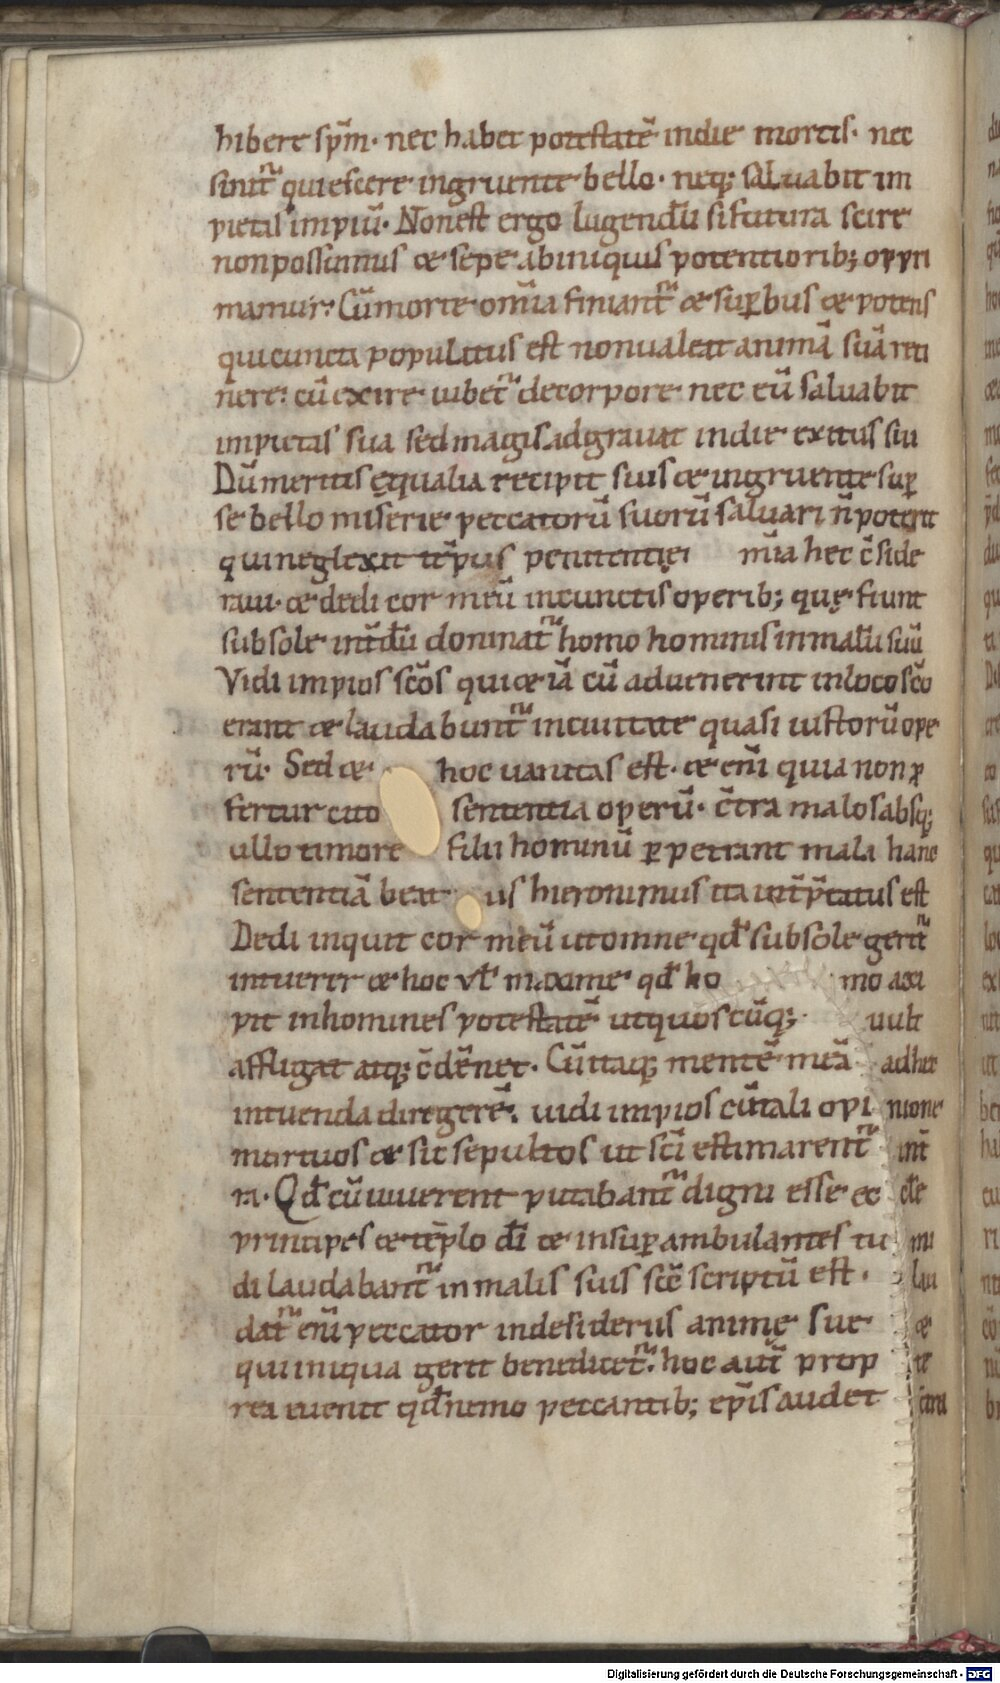 hibere sp̄m· nec habet potestatē in die mortis· nec
sinit᷑ quiescere ingruente bello· neq; saluabit im
pietas impiū· Non est ergo lugendū si futura scire
non possumus & sepe ab iniquis potentiorib; oppri
mamur· Cū morte om̄ia finiant᷑ & suꝑbus & potens
qui cuncta populatus est non ualeat animā suā reti
nere· cū exire iubet᷑ de corpore· nec eū saluabit
impietas sua sed magis adgrauat in die exitus sui
Dū meritis ęqualia recipit suis & ingruente suꝑ
se bello miserie peccatorū suorū saluari n̄ poterit
qui neglexit tēpus penitentiei m̄ia hec c̄side
raui· & dedi cor meū in cunctis operib; quę fiunt
sub sole int̄dū dominat᷑ homo hominis in malū suū
Vidi impios sc̄os qui & iā cū aduenerint in loco sc̄o
erant & laudabunt᷑ in ciuitate quasi iustorū ope
rū· Sed & hoc uanitas est· & eni̅ quia non ꝓ
fertur cito sententia operū· c̄tra malos absq;
ullo timore filii hominū ꝑpetrant mala hanc
sententiā beat us hieronimus ita int̄ꝑtatus est
Dedi inquit cor meū ut omne qd̄ sub sole gerit᷑
intuerer & hoc vl̄ maxime qd̄ ho mo acci
pit in homines potestatē ut quoscūq; uult
affligat atq; c̄dēnet· Cū itaq; mentē meā ad hec
intuenda diregerē· uidi impios cū tali opi nione
mortuos & sic sepultos ut sc̄i estimarent᷑ int̄
ra· Qd̄ cū uiuerent putabant᷑ digni esse ec cl̄e
principes & tēplo dī & insuꝑ ambulantes tu mi
di laudabant᷑ in malis suis sc̄ scriptū est· lau
dat᷑ eni̅ peccator in desideriis anime sue &
qui iniqua gerit benedicet᷑· hoc autē prop te
rea euenit qd̄ nemo peccantib; ep̄is audet c̄tra
Digitalisierung gefördert durch die Deutsche Forschungsgemeinschaft - DFG